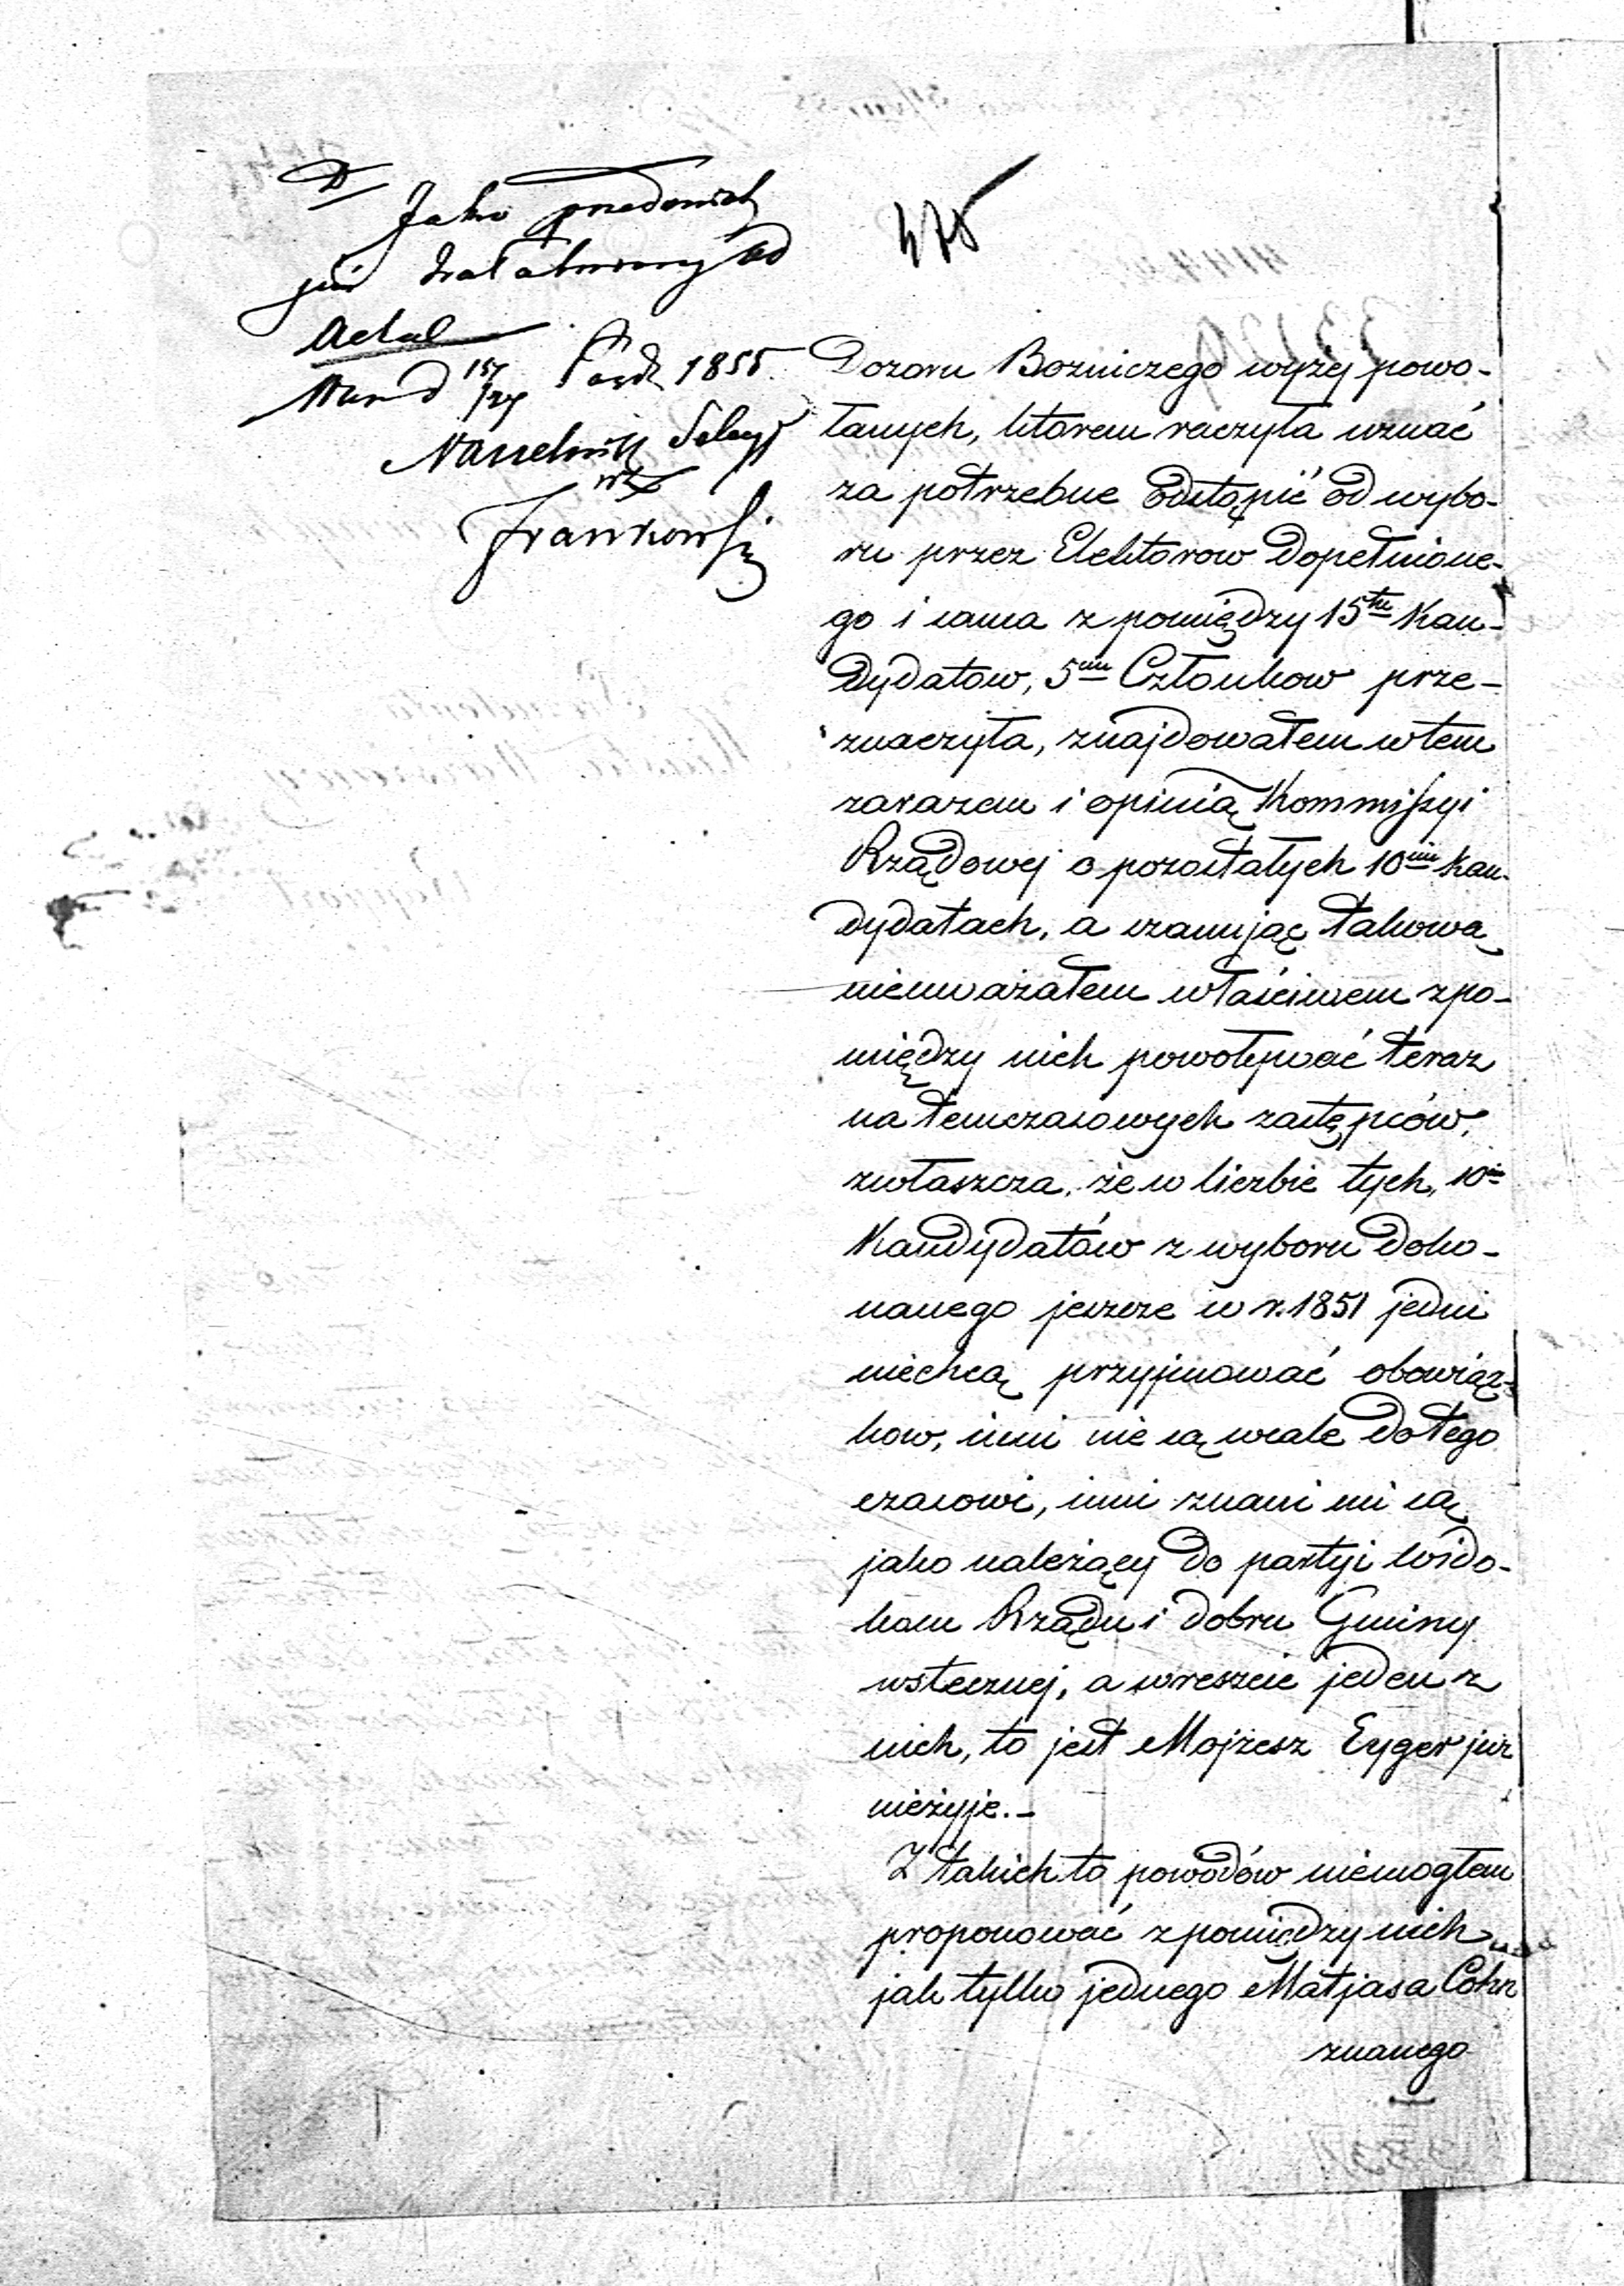 Jako przedmiot
już załatwiony ad
Acta
Warsz d 15/27 Paźdz 1855.
Naczelnik Sekcyi
Frankowski
475
Dozoru Bozniczego wyzej powo-
łanych, którem raczyła uznać
za potrzebne odstąpić od wybo-
ru przez Elektorow dopełnione-
go i sama z pomiędzy 15tu Kan-
dydatow, 5ciu Członkow prze-
znaczyła, znajdowałem w tem
zarazem i opinią Kommissyi
Rządowej o pozostałych 10ciu Kan-
dydatach, a szanując takową
nieuważałem właściwem zpo-
między nich powoływać teraz
na temczasowych zastępców,
zwłaszcza, że w liczbie tych, 10ciu
Kandydatów z wyboru doko-
nanego jeszcze w r. 1851 jedni
niechcą przyjmować obowiąz-
kow, inni nie są wcale do tego
czasowi, inni znani mi są
jako należący do partyi wido-
kom Rządu i dobru Gminy
wstecznej, a wreszcie jeden z
nich, to jest Mojzesz Eyger już
nieżyje.-
Z takich to powodów niemogłem
proponować z pomiędzy nich
jak tylko jednego Matjasa Cohn
znanego